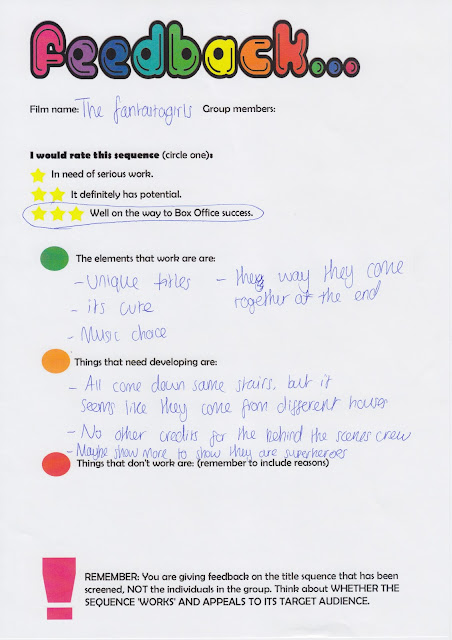 Feedback...
Film name: The fantastogirls Group members:
I would rate this sequence (circle one):
In need of serious work.
It definitely has potential.
Well on the way to Box Office success.
The elements that work are are:
- unique titles
- its cute
- Music choice
- the way they come
together at the end
Things that need developing are:
- All come down same stairs, but it
seems like they come from different houses
- No other credits for the behind the scenes crew
- Maybe show more to show they are superheroes
Things that don't work are: (remember to include reasons)
REMEMBER: You are giving feedback on the title squence that has been
screened, NOT the individuals in the group. Think about WHETHER THE
SEQUENCE 'WORKS' AND APPEALS TO ITS TARGET AUDIENCE.